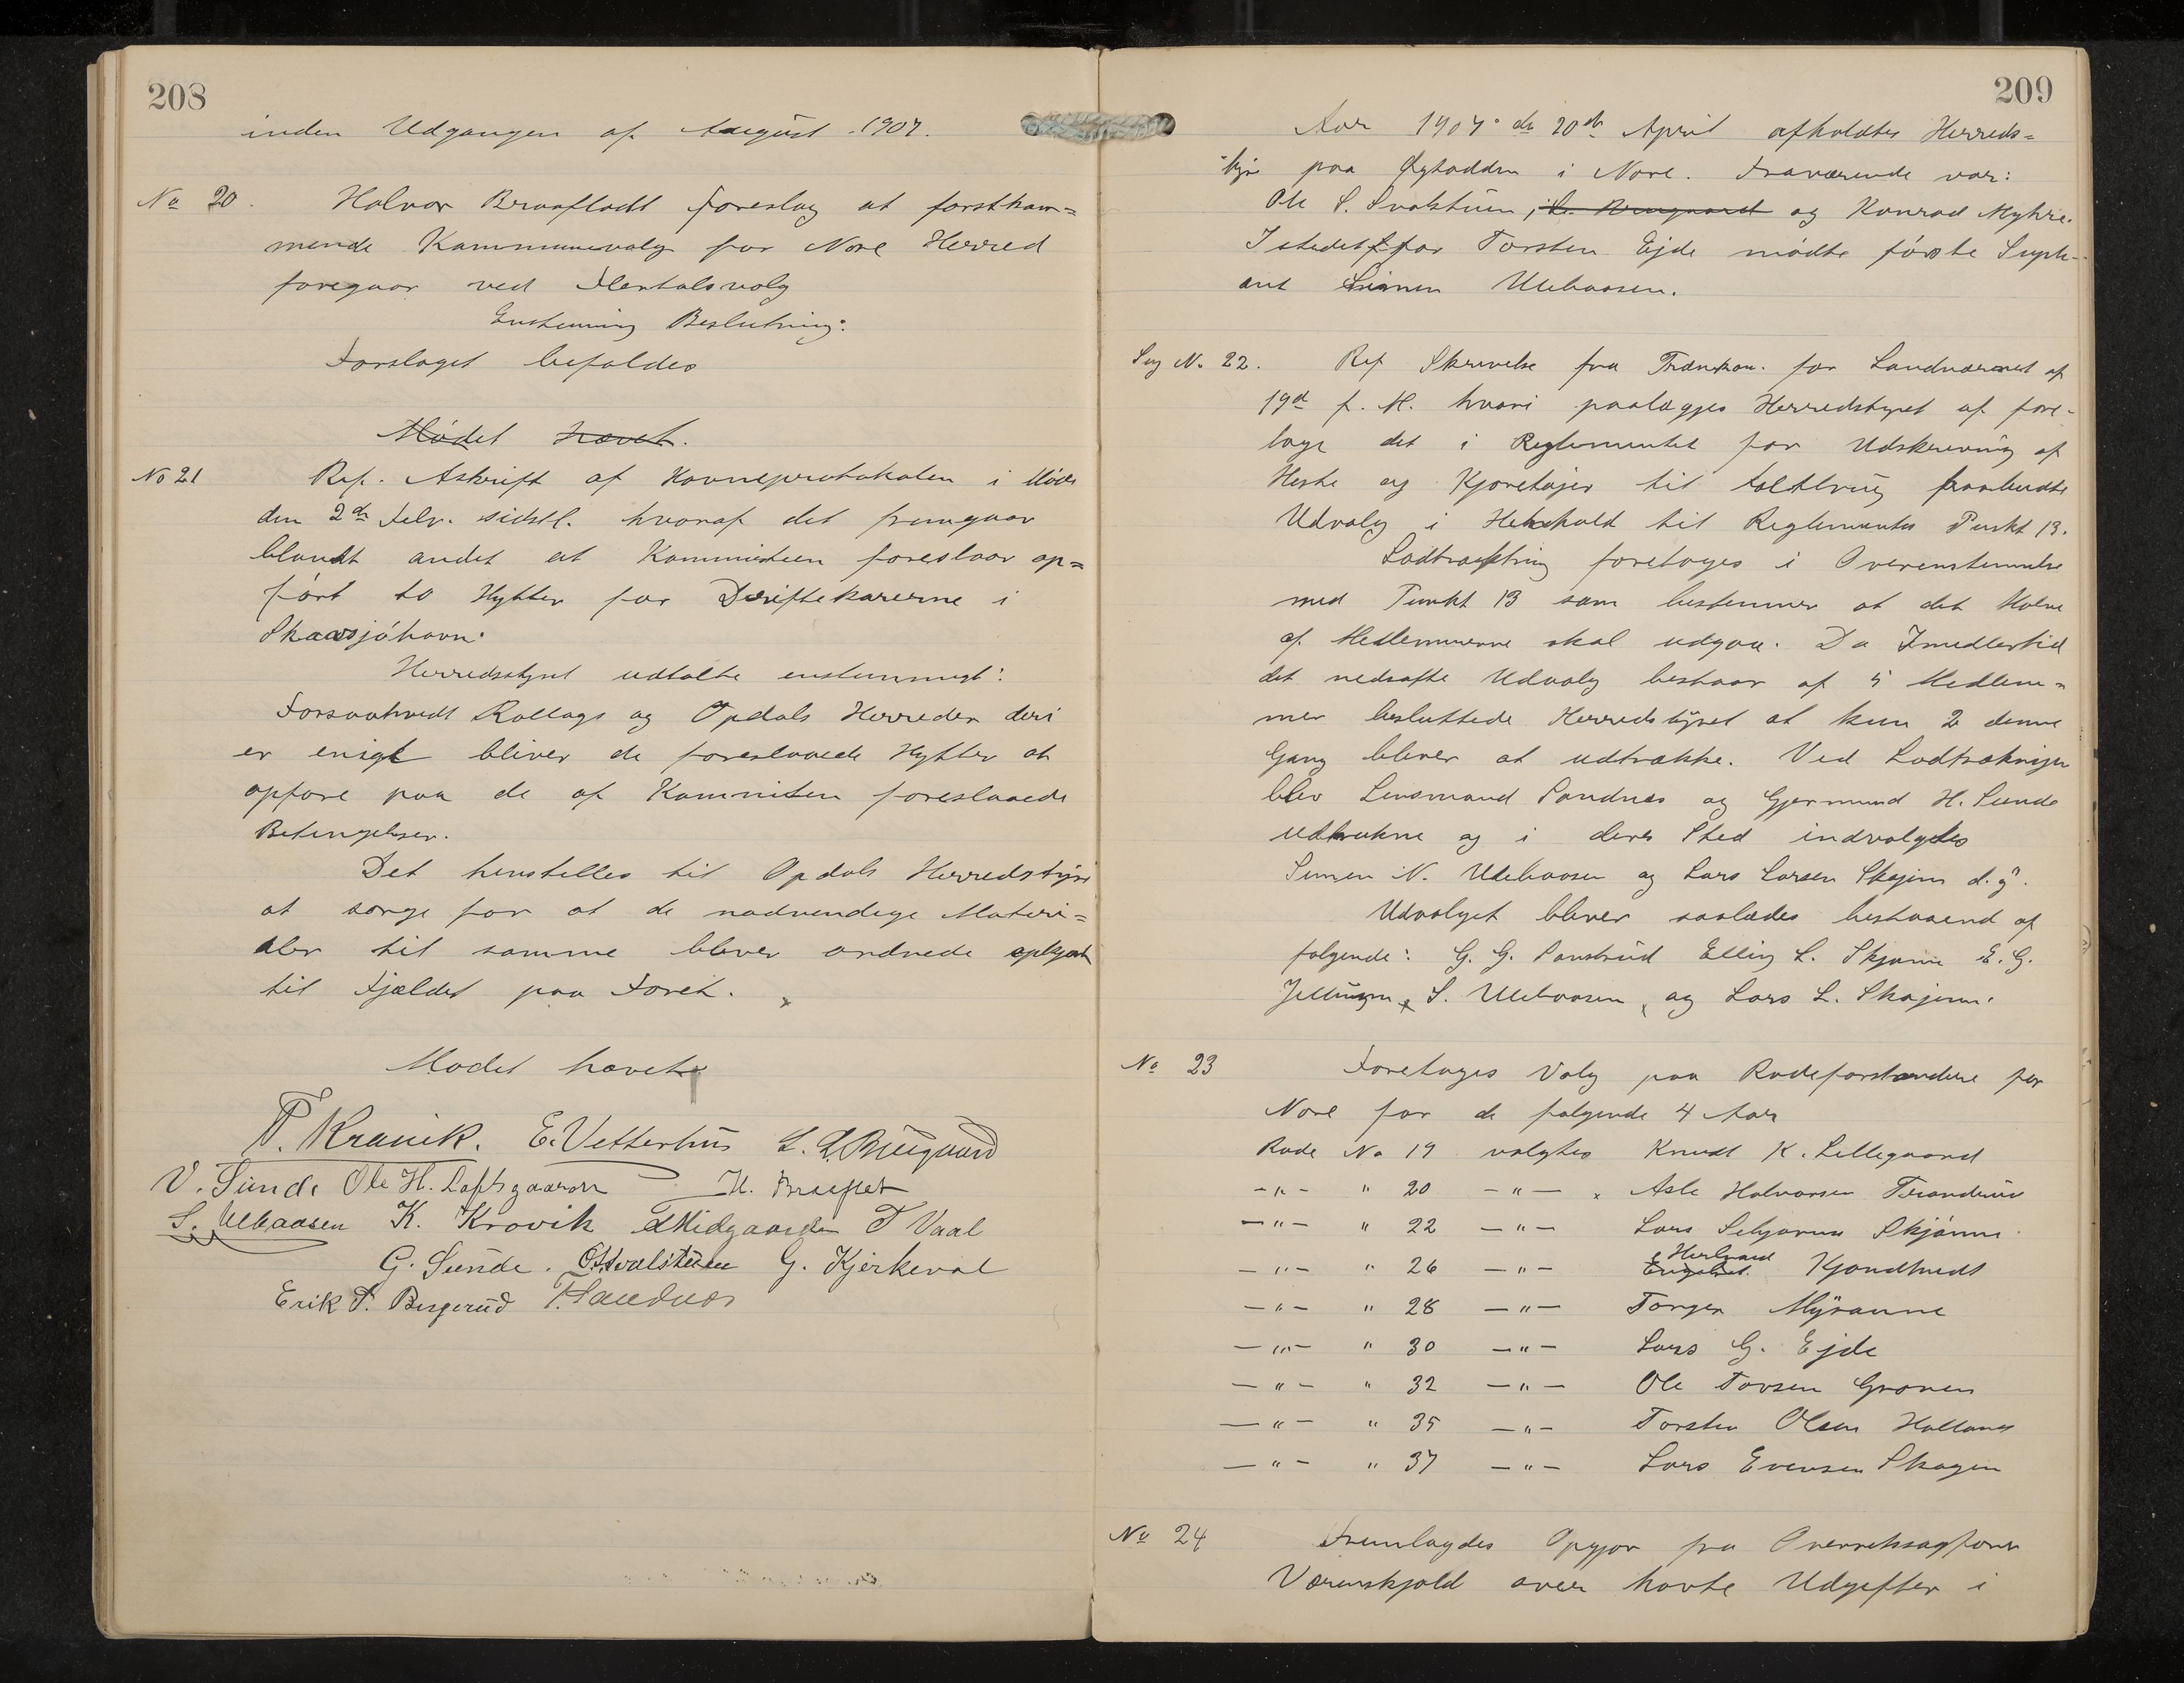 208
inden Udgangen af August 1907.
No 20. Halvor Braafladt foreslog at førstkom=
mende Kommunevalg for Nore Herred
foregaar ved Flertalsvalg
Enstemmig Beslutning:
Forslaget bifaldes
Mødet hævet.
No 21 Ref. Afskrift af Havneprotokolen i Møde
den 2den Febr. sidstl. hvoraf det fremgaar
blandt andet at Kommisteen foreslaar op=
ført to Hytter for Driftekarerne i
Skaarsjøhavn.
Herredsstyret udtalte enstemmigt:
Forsaavidt Rollags og Opdals Herreder deri
er enigt bliver de foreslaaede Hytter at
opføre paa de af Kommiteen foreslaaede
Betingelser.
Det henstilles til Opdals Herredstyre
at sørge for at de nødvendige Materi=
aler til samme bliver ordnede opkjørt
til Fjældet paa Føret.
Mødet hævet
T. Kravik. E. Vetterhus L. L. Brugaard
V. Sunde Ole H. Loftsgaarden H. Braaflat
S. Ulebaasen K. Kravik E Midgaarden T Vaal
G. Sunde. O S Svalstuen G. Kjerkeval
Erik T. Bergerud T. Sandnes
209
Aar 1907 den 20de April afholdtes Herreds=
tyre paa Øygardden i Nore. Fraværende var:
Ole S. Svalstuen, L. Bruugaard og Konrad Myhre.
Istedetf for Torsten Ejde mødte første Suple-
ant Simen Ulebaasen.
Sag No. 22. Ref Skrivelse fra Trænkom. for Landværnet af
19de f. M. hvori paalægges Herredstyret af fore-
tage det i Reglementet for Udskrivning af
Heste og Kjøretøjer til Feltbrug paabudte
Udvalg i Henhold til Reglementes Punkt 13.
Lodtræktning foretages i Overenstemmelse
med Punkt 13 som bestemmer at det Halve
af Medlemmerne skal udgaa. Da Imedlertid
det nedsatte Udvalg bestaar af 5 Medlem=
mer besluttede Herredstyret at kun 2 denne
Gang bliver at udtrække. Ved Lodtrækningen
blev Lensmand Sandnes og Gjermund H. Sunde
udtrukne og i deres Sted indvalgtes
Simen N. Ulebaasen og Lars Larsen Skajem d. y.
Udvalget bliver saaledes bestaaend af
følgende: G. G. Ponsbrud Elling L. Skjønne E. G.
S. Ulebaasen, og Lars L. Skajem.
No 23 Foretages Valg paa Rodeforstandere for
Nore for de følgende 4 Aar
Rode No 19 valgtes Knudt K. Lillegaard
-"- " 20 -"- Asle Halvorsen Trandrud
-"- " 22 -"- Lars Skjønne
-"- " 26 -"- Herbrand Kjøndhudt
-"- " 28 -"- Torger Myranne
-"- " 30 -"- Lars G. Ejde
-"- " 32 -"- Ole Tovsen Grønen
-"- " 35 -"- Torsten Olsen Halland
-"- " 37 -"- Lars Evensen Skagen
No 24 Fremlagdes Opgjør fra Overretssagfører
Værenskjold over havte Udgifter i